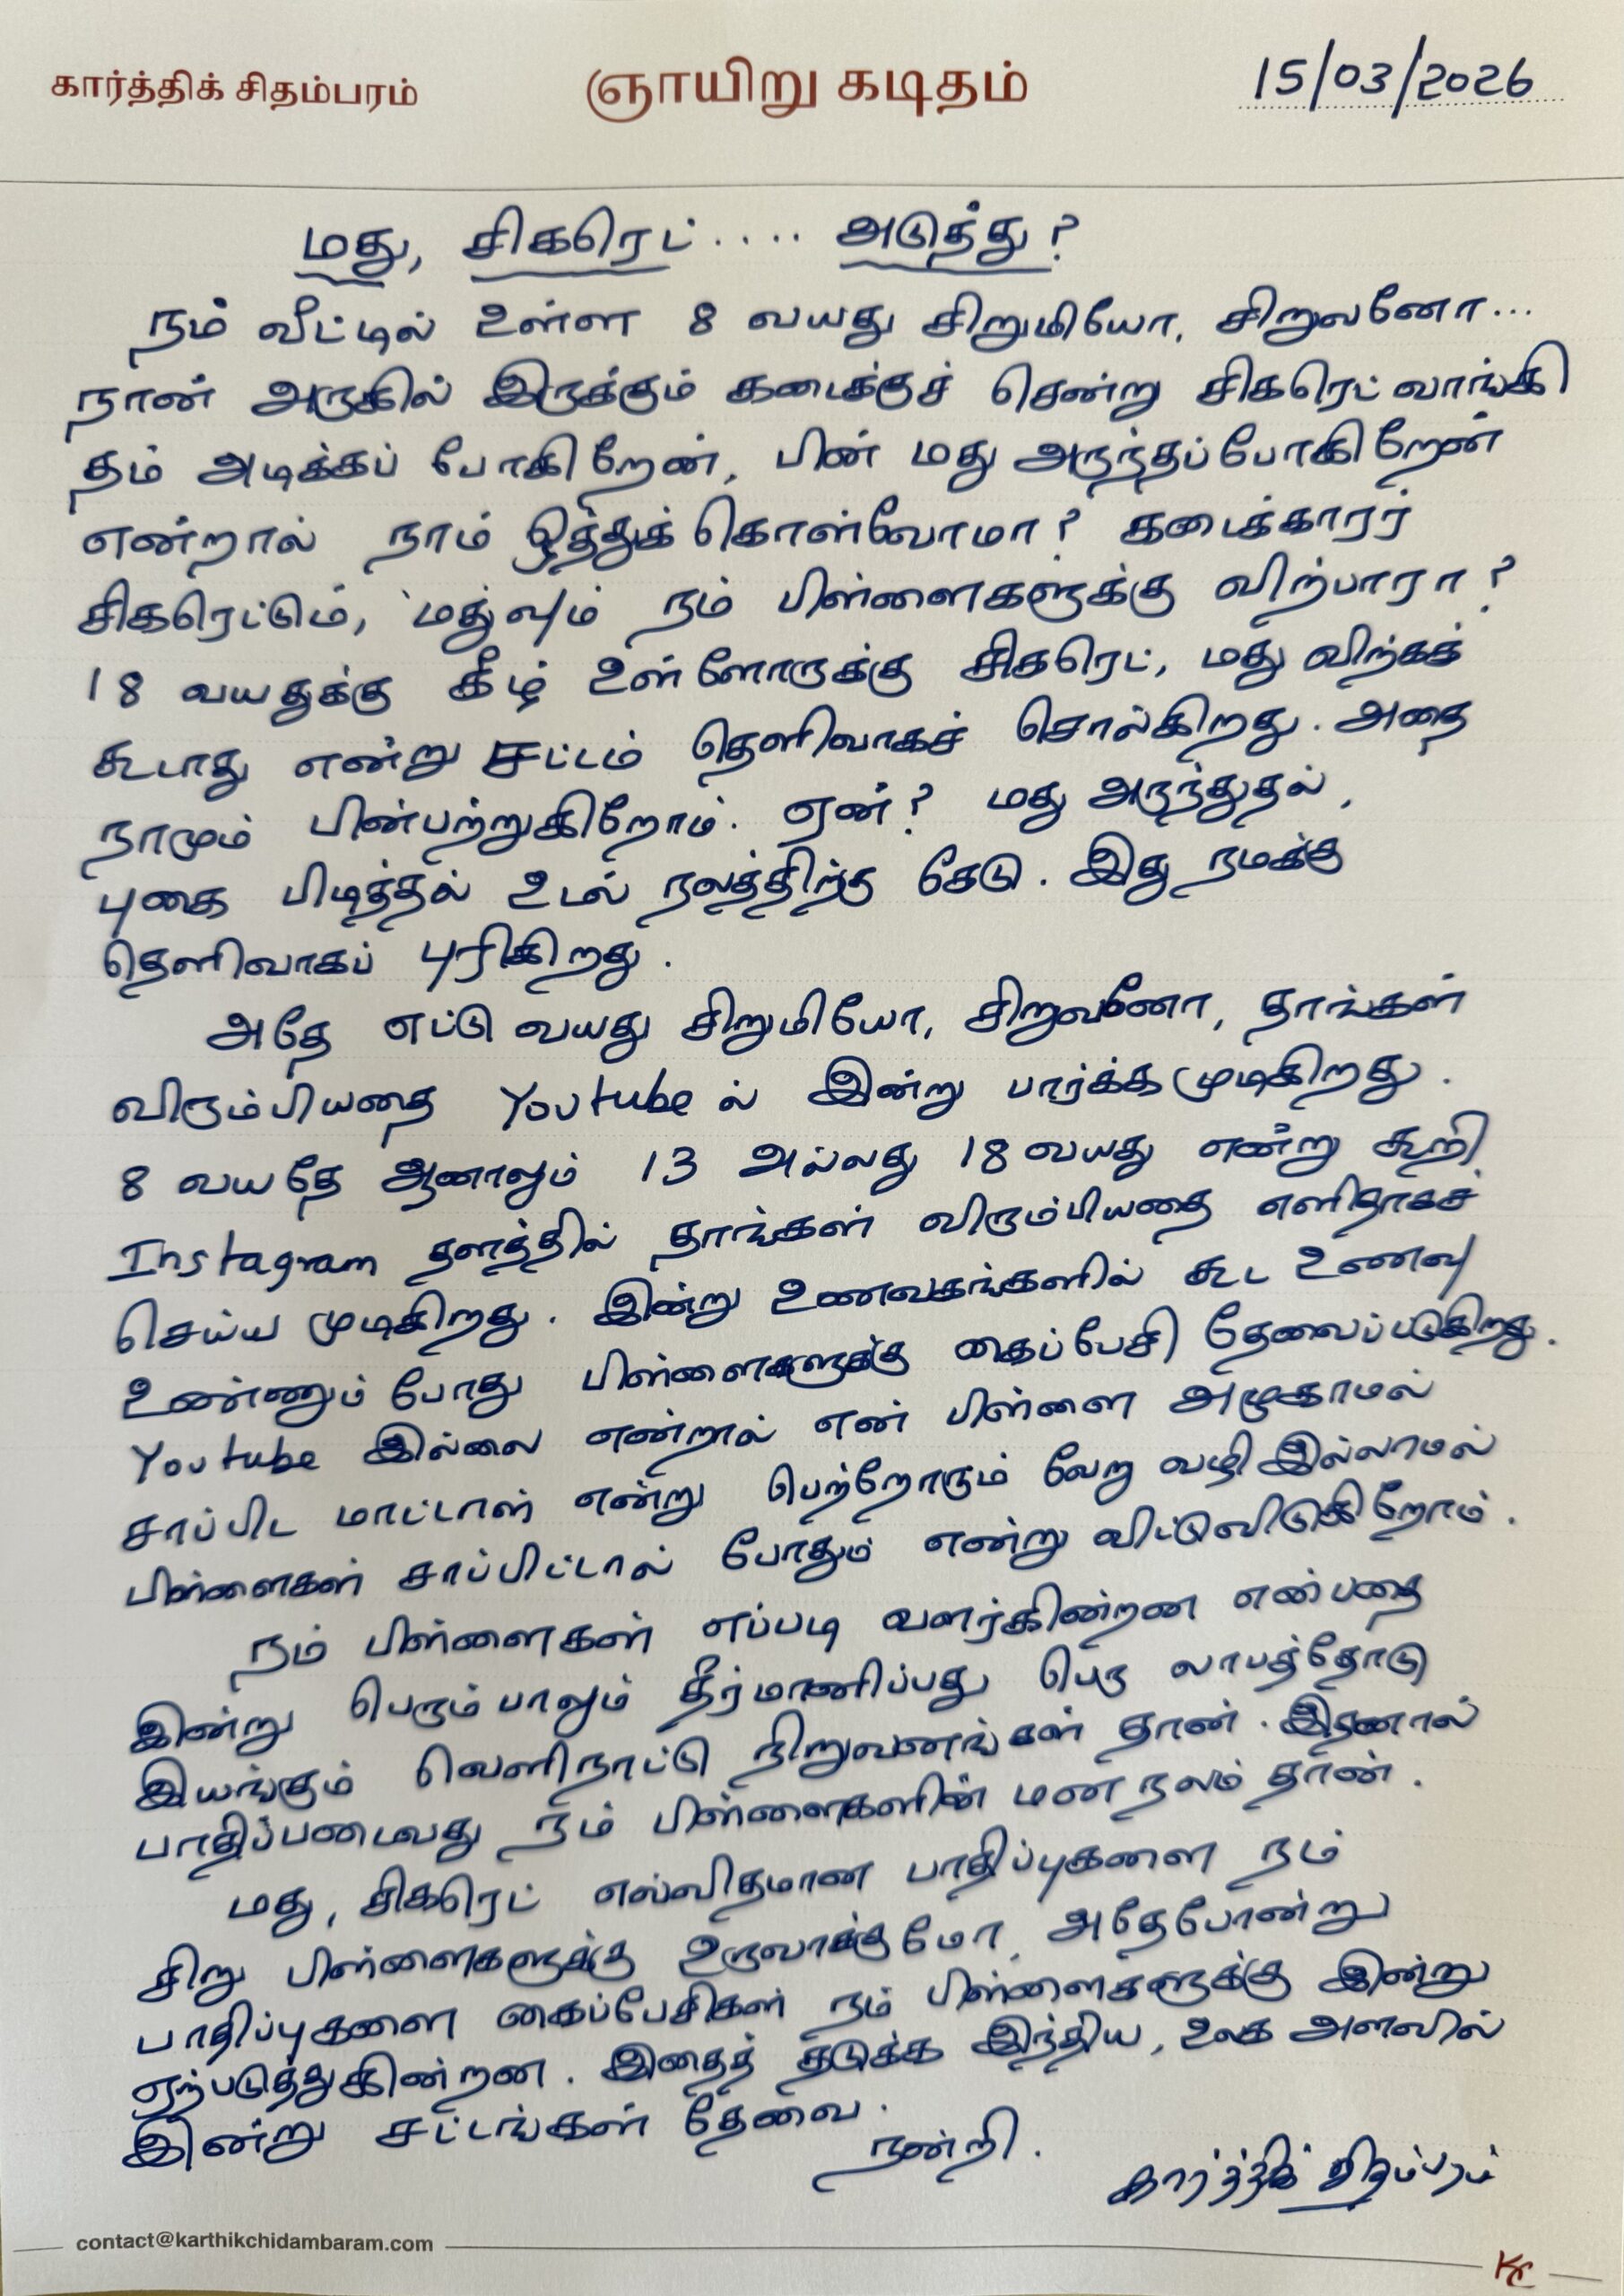 கார்த்திக் சிதம்பரம்
ஞாயிறு கடிதம்
15/03/2026
மது, சிகரெட் .... அடுத்து?
நம் வீட்டில் உள்ள 8 வயது சிறுமியோ, சிறுவனோ...
நான் அருகில் இருக்கும் கடைக்குச் சென்று சிகரெட் வாங்கி
தம் அடிக்கப் போகிறேன், பின் மது அருந்தப்போகிறேன்
என்றால் நாம் ஒத்துக் கொள்வோமா? கடைக்காரர்
சிகரெட்டும், மதுவும் நம் பிள்ளைகளுக்கு விற்பாரா?
18 வயதுக்கு கீழ் உள்ளோருக்கு சிகரெட், மது விற்கக்
கூடாது என்று சட்டம் தெளிவாகச் சொல்கிறது. அதை
நாமும் பின்பற்றுகிறோம். ஏன்? மது அருந்துதல்,
புகை பிடித்தல் உடல் நலத்திற்கு கேடு. இது நமக்கு
தெளிவாகப் புரிகிறது.
அதே எட்டு வயது சிறுமியோ, சிறுவனோ, தாங்கள்
விரும்பியதை Youtube ல் இன்று பார்க்க முடிகிறது.
8 வயதே ஆனாலும் 13 அல்லது 18 வயது என்று கூறி
Instagram தளத்தில் தாங்கள் விரும்பியதை எளிதாகச்
செய்ய முடிகிறது. இன்று உணவகங்களில் கூட உணவு
உண்ணும் போது பிள்ளைகளுக்கு கைப்பேசி தேவைப்படுகிறது.
Youtube இல்லை என்றால் என் பிள்ளை அழுகாமல்
சாப்பிட மாட்டாள் என்று பெற்றோரும் வேறு வழி இல்லாமல்
பிள்ளைகள் சாப்பிட்டால் போதும் என்று விட்டுவிடுகிறோம்.
நம் பிள்ளைகள் எப்படி வளர்கின்றன என்பதை
இன்று பெரும்பாலும் தீர்மானிப்பது பெரு லாபத்தோடு
இயங்கும் வெளிநாட்டு நிறுவனங்கள் தான். இதனால்
பாதிப்படைவது நம் பிள்ளைகளின் மன நலம் தான்.
மது, சிகரெட் எவ்விதமான பாதிப்புகளை நம்
சிறு பிள்ளைகளுக்கு உருவாக்குமோ, அதேபோன்று
பாதிப்புகளை கைப்பேசிகள் நம் பிள்ளைகளுக்கு இன்று
ஏற்படுத்துகின்றன. இதைத் தடுக்க இந்திய, உலக அளவில்
இன்று சட்டங்கள் தேவை.
நன்றி.
கார்த்திக் சிதம்பரம்
contact@karthikchidambaram.com
KC